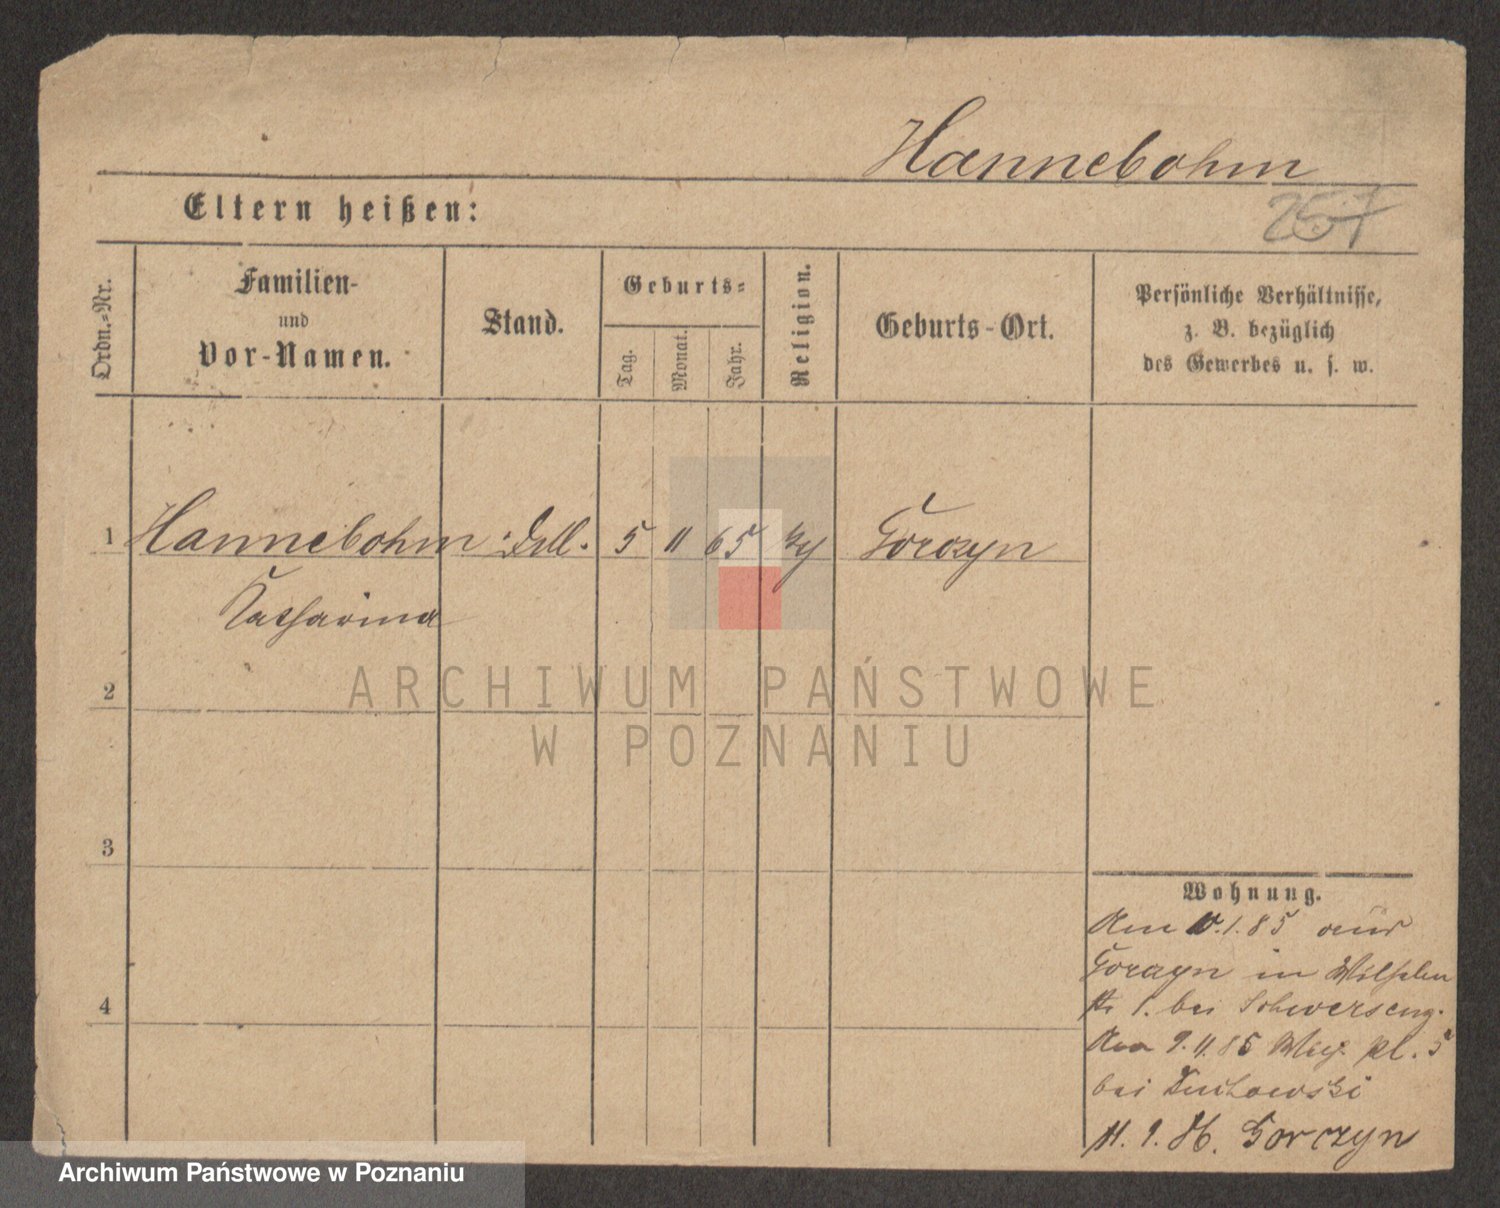 Hannebohm
Eltern heißen:
257
Ordn.-Nr.
Familien-
und
Vor-Namen.
Stand.
Geburts-
Tag.
Monat.
Jahr.
Religion.
Geburts-Ort.
Persönliche Verhältnisse,
z. B. bezüglich
des Gewerbes u. s. w.
1 Hannebohm 5 11 65 Gorczyn
Katharina
2
3
4
Wohnung.
Am 1.85 aus
Gorczyn in Wilhelm
1. bei Schwersenz.
9.11.85 pl. 5
bei
11. 9. Gorczyn
ARCHIWUM PAŃSTWOWE
W POZNANIU
Archiwum Państwowe w Poznaniu